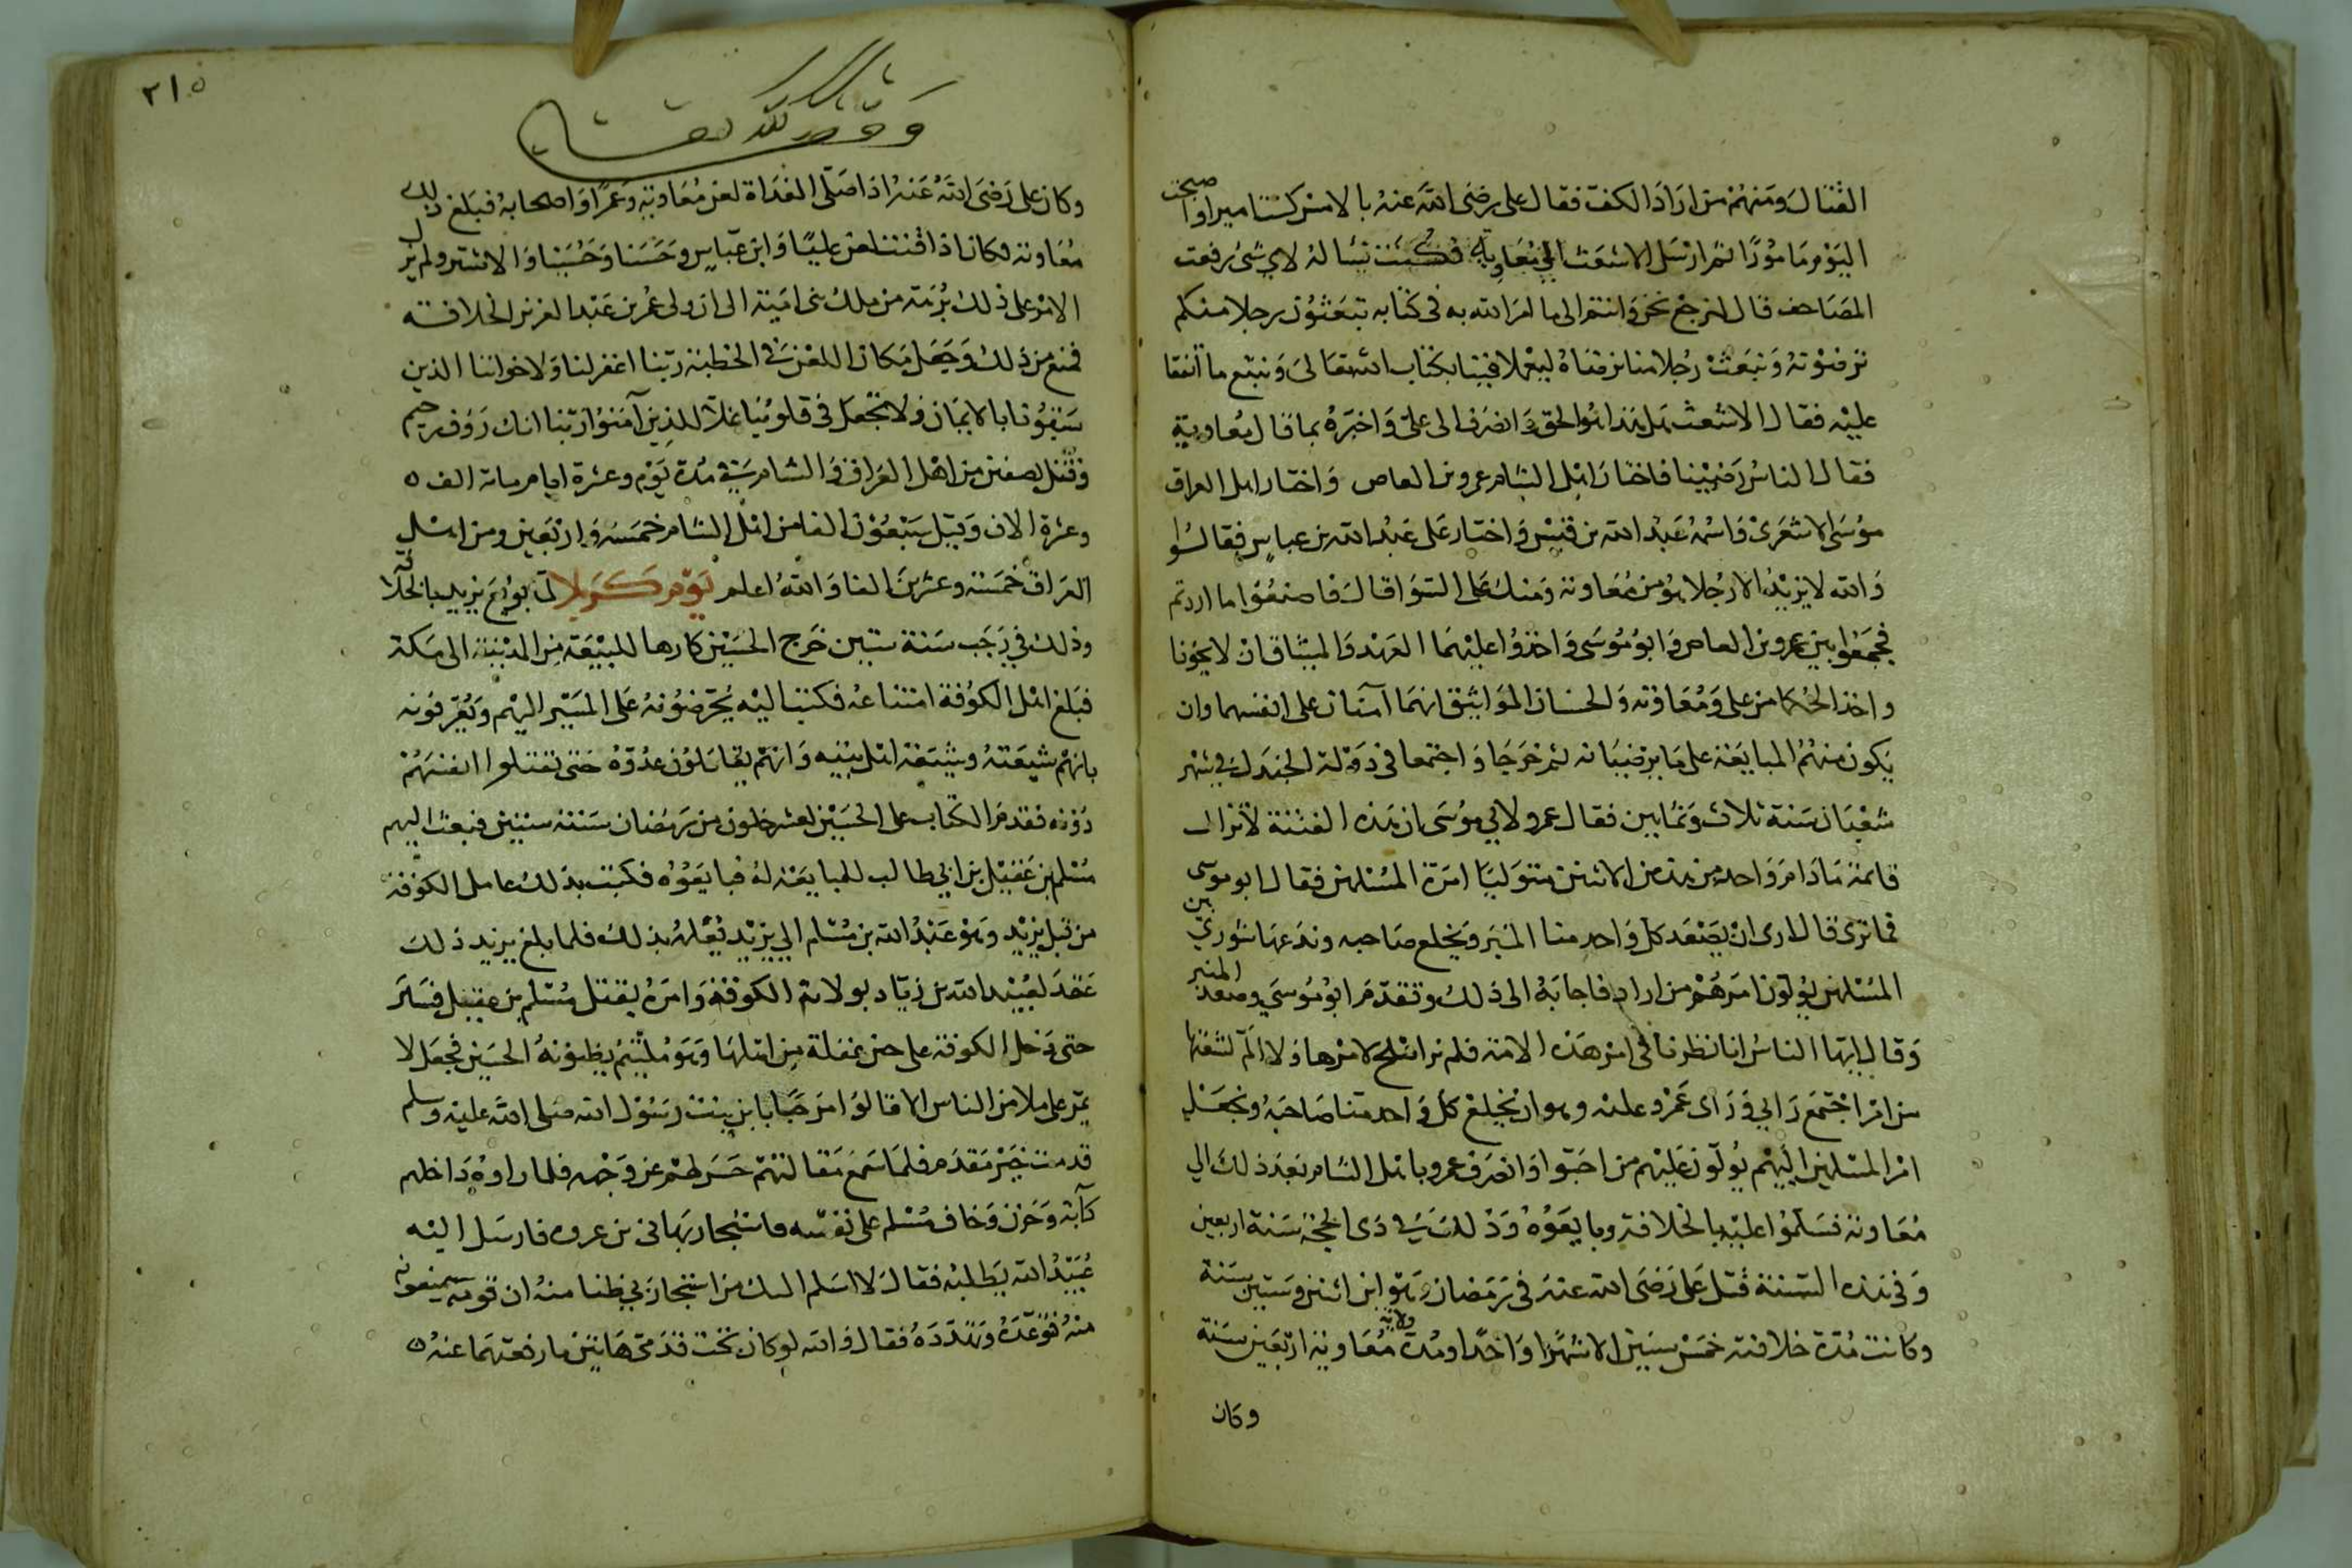 القتال ومنهم من اراد الكف فقال على رضى الله عنه بالامس كنت اميرا واصبحت
اليوم مامورًا ثم ارسل الاشعث الي معاوية يسالهُ لاي شى رفعت
المصاحف قال لنرجع نحن وانتم الى ما امر الله به فى كتابه تبعثون رجلا منكم
ترضونه ونبعث رجلا منا نرضاه ليعملا فينا بكتاب الله تعالى ونتبع ما اتفقا
عليه فقال الاشعث هل هذا هو الحق وانصرف الى على واخبره بما قال معاوية
فقال الناس رضينا فاختار اهل الشام عمرو بن العاص واختار اهل العراق
موسى الاشعرى واسمه عبد الله بن قيس واختار على عبد الله بن عباس فقالوا
والله لا نريد الا رجلا هو من معاوية ومنك على السوا قال فاصنعوا ما اردتم
فجمعوا بين عمرو بن العاص وابو موسى واخذوا عليهما العهد والميثاق ان لا يخونا
واخذ الحكما من على ومعاوية والحسان المواثيق انهما آمنان على انفسهما وان
يكون منهم المبايعة على ما يرضيانه ثم خرجا واجتمعا فى دولة الجندل فى شهر
شعبان سنة ثلاث وثمانين فقال عمرو لابي موسى ان هذه الفتنة لا تزال
قائمة ما دام واحد من هذين الاثنين متوليًا امرة المسلمين فقال ابو موسى
فما ترى قال ارى ان يصعد كل واحد منا المنبر ويخلع صاحبه وندعها شورى بين
المسلمين يولون امرهم من ارادوا فاجابهُ الى ذلك وتقدم ابو موسى وصعد المنبر
وقال ايها الناس انا نظرنا فى امر هذه الامة فلم نر اصلح لامرها ولا الم لشعثها
من امر اجتمع رايي وراى عمرو عليه وهو ان يخلع كل واحد منا صاحبه ونجعل
امر المسلمين اليهم يولون عليهم من احبوا وانصرف عمرو باهل الشام بعد ذلك الي
معاوية فسلموا عليه بالخلافة وبايعوه وذلك فى ذى الحجة سنة اربعين
وفى هذه السنة قتل على رضى الله عنه فى رمضان وهو ابن اثنين وستين سنة
وكانت مدة خلافته خمس سنين الا شهرًا واحدًا ومدة ولاية معاوية اربعين سنة
وكان
٢١٥
وقف لله تعالى
وكان على رضى الله عنه اذا صلى الغداة لعن معاوية وعمرًا واصحابه فبلغ ذلك
معاوية فكان اذا قنت لعن عليًا وابن عباس وحسنا وحسينا والاشتر ولم يزل
الامر على ذلك برهة من ملك بنى امية الى ان ولى عمر بن عبد العزيز الخلافة
فمنع من ذلك وجعل مكان اللعن فى الخطبة ربنا اغفر لنا ولاخواننا الذين
سبقونا بالايمان ولا تجعل فى قلوبنا غلا للذين آمنوا ربنا انك رؤف رحيم
وقتل بصفين من اهل العراق والشام فى مدة يوم وعشرة ايام مائة الف
وعشرة الاف وقيل سبعون الفا من اهل الشام خمسه واربعين ومن اهل
العراق خمسة وعشرين الفا والله اعلم يوم كربلا لما بويع يزيد بالخلافة
وذلك في رجب سنة ستين خرج الحسين كارها للبيعة من المدينة الى مكة
فبلغ اهل الكوفة امتناعه فكتبنا اليه يحرضونه على المسير اليهم ويعرفونه
بانهم شيعته وشيعة اهل بيته وانهم يقاتلون عدوه حتى تقتلوا انفسهم
دونه فقدم الكتاب على الحسين لعشر خلون من رمضان سنة ستين فبعث اليهم
مسلم بن عقيل بن ابي طالب للمبايعة له فبايعوه فكتب بذلك عامل الكوفة
من قبل يزيد وهو عبد الله بن مسلم الي يزيد يعلمه بذلك فلما بلغ يزيد ذلك
عقد لعبيد الله بن زياد بولاية الكوفة وامره بقتل مسلم بن عقيل فسار
حتى دخل الكوفة على حين غفلة من اهلها وهو ملثم يظنونه الحسين فجعل لا
يمر على ملا من الناس الا قالوا مرحبًا بابن بنت رسول الله صلى الله عليه وسلم
قدمت خير مقدم فلما سمع مقالتهم حسر لهم عن وجهه فلما راوه داخلهم
كآبة وحزن وخاف مسلم على نفسه فاستجار بهانى بن عروه فارسل اليه
عبيد الله يطلبه فقال لا اسلم اليك من استجار بي ظنا منه ان قومه يمنعونه
منه فتوعده وتهدده فقال والله لو كان تحت قدمى هاتين ما رفعتهما عنهُ